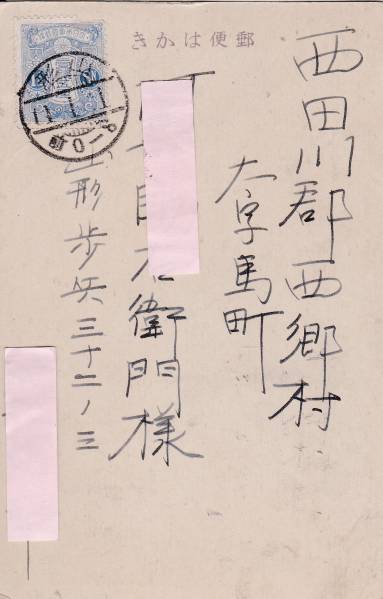 郵便はかき
西田川郡西郷村
大字馬町
衛門様
山形歩兵三十二ノ三
11.1.1
前0-9